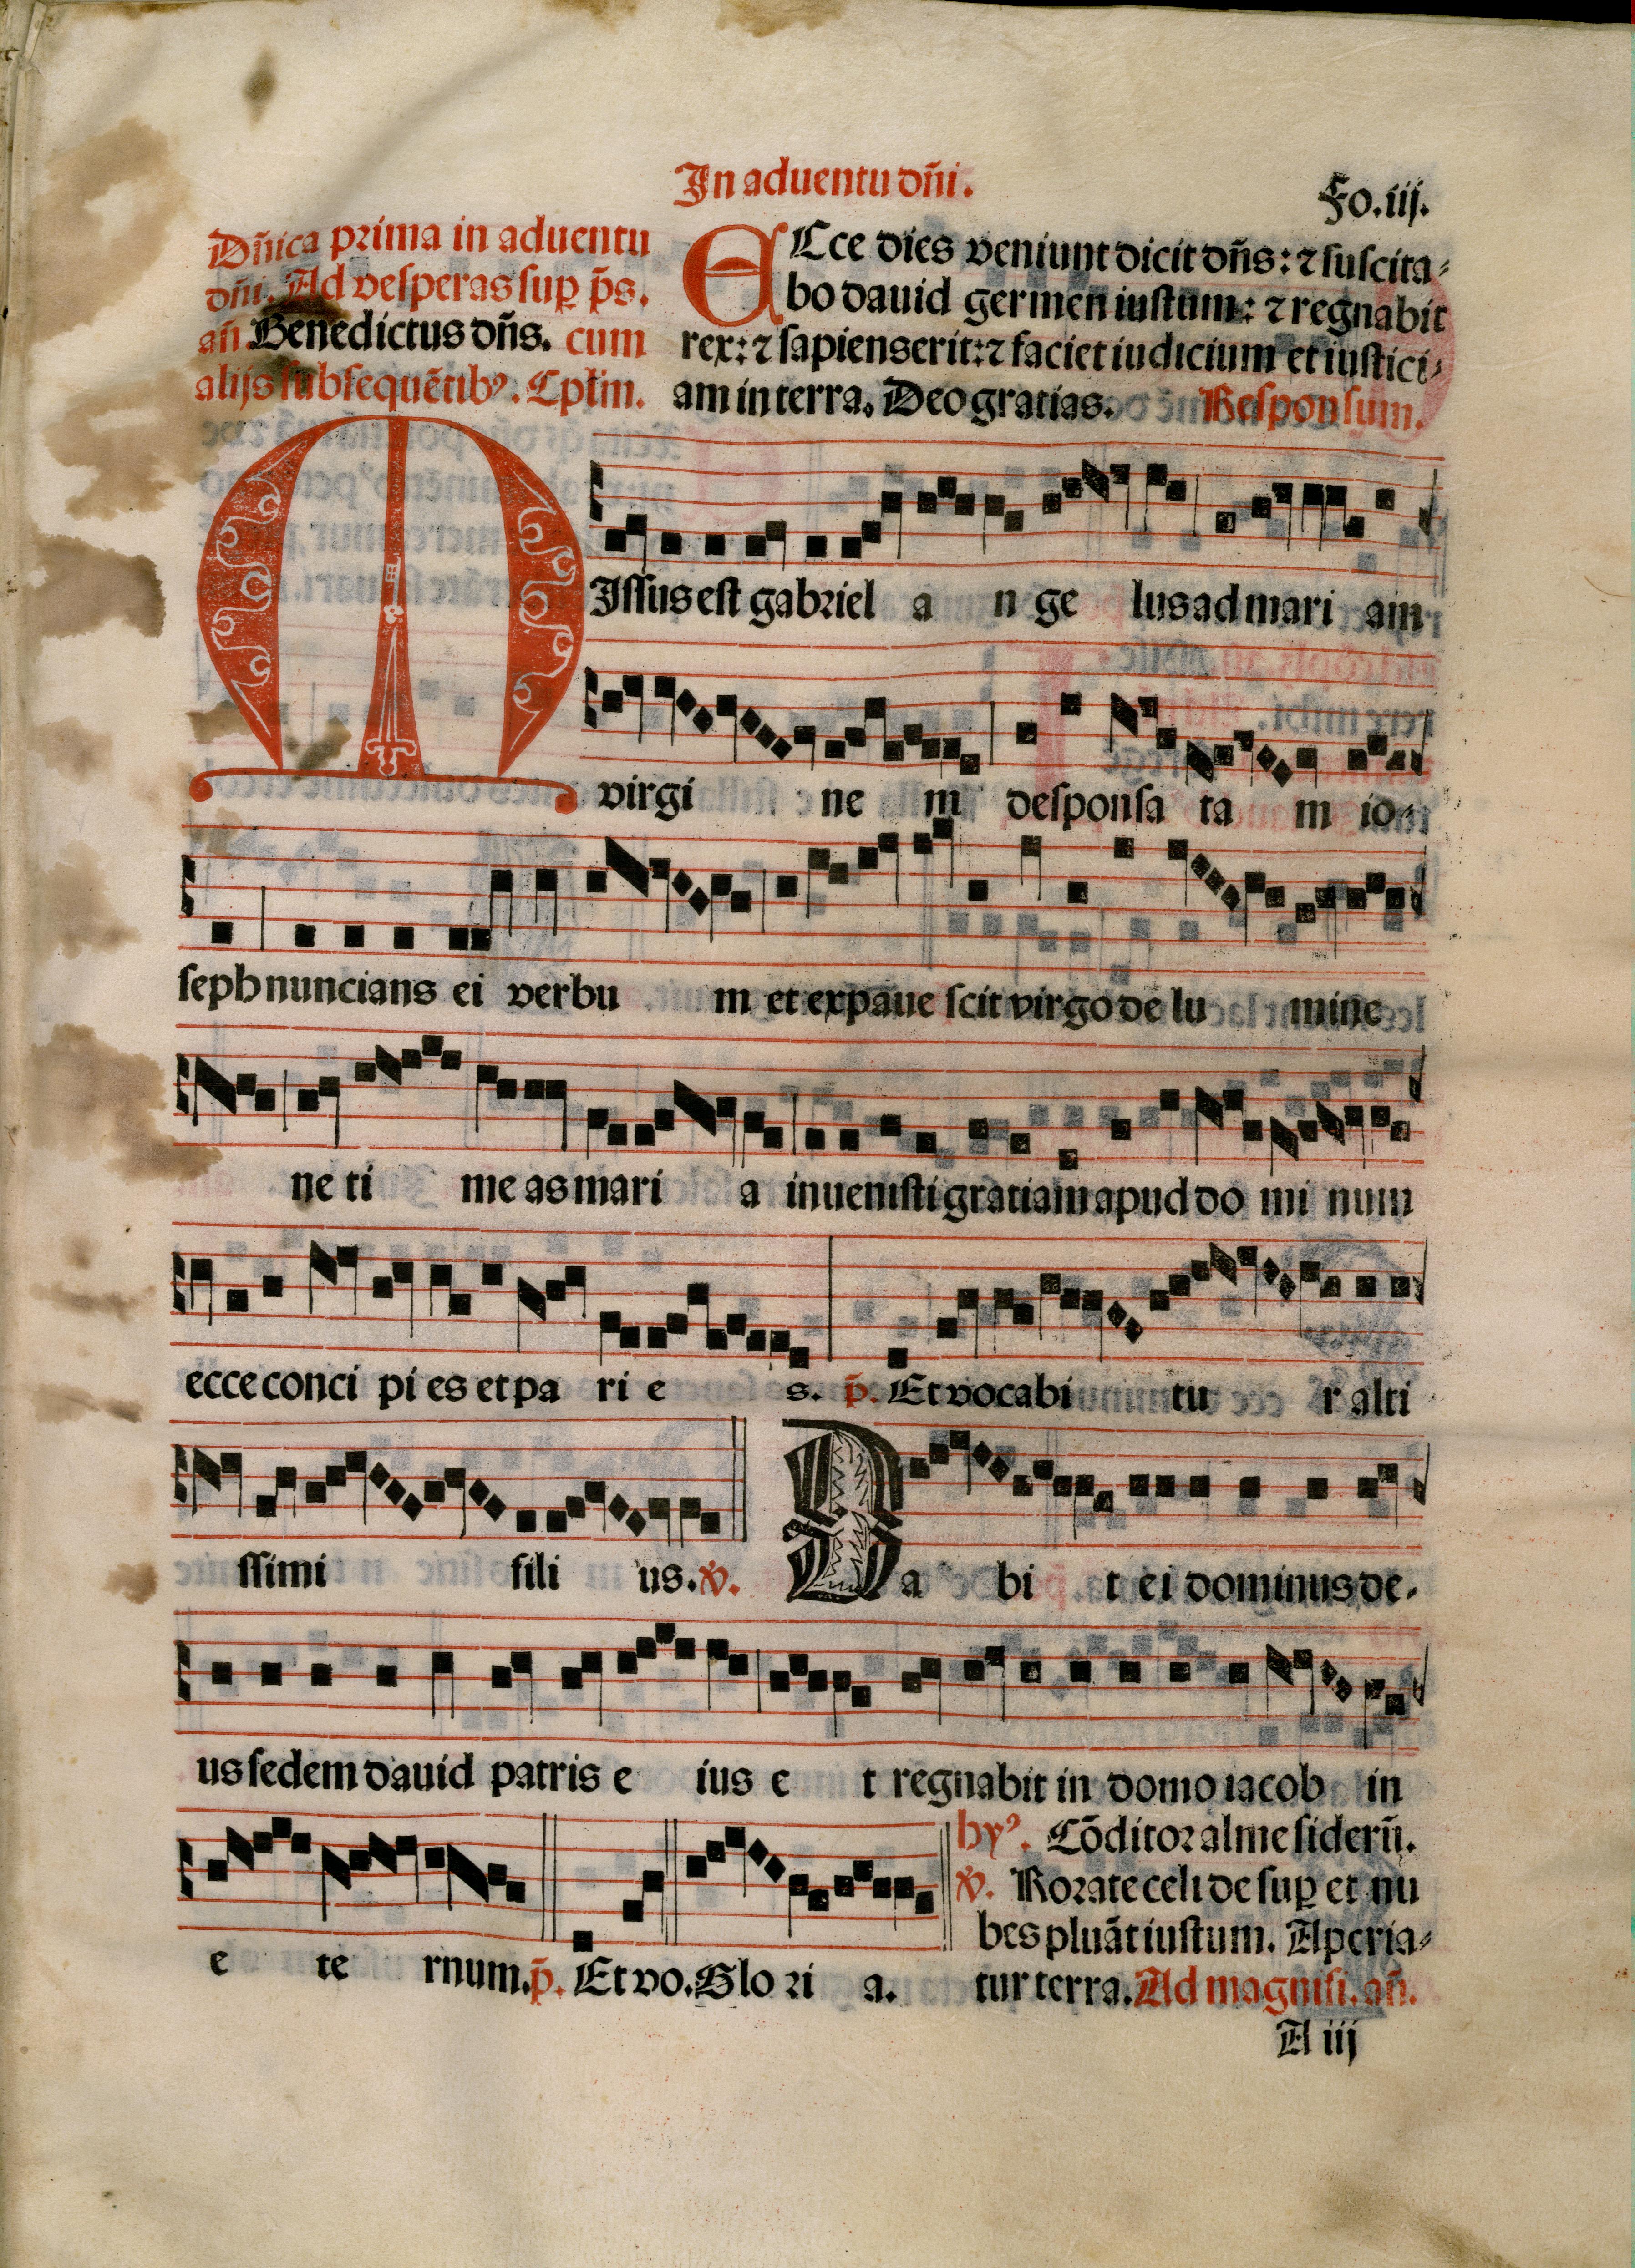 In aduentu dñi.
Fo.iij.
Dñica prima in aduentu
dñi. Ad vesperas sup p̄s.
añ Benedictus dñs. cum
alijs subsequētibꝰ. Cplīm.
ECce dies veniunt dicit dñs: ⁊ suscita⸗
bo dauid germen iustum: ⁊ regnabit
rex: ⁊ sapiens erit: ⁊ faciet iudicium et iustici⸗
am in terra. Deo gratias. Responsum.
MIssus est gabriel a n ge lus ad mari am
virgi ne m desponsa ta m io⸗
seph nuncians ei verbu m et expaue scit virgo de lu mine
ne ti me as mari a inuenisti gratiam apud do mi num
ecce conci pi es et pa ri e s. p̄. Et vocabi tu r alti
ssimi fili us. ℣. Da bi t ei dominus de⸗
us sedem dauid patris e ius e t regnabit in domo iacob in
e te rnum. p̄. Et vo. Glo ri a.
hyꝰ. Cōditor alme siderū.
℣. Rorate celi desup et nu
bes pluāt iustum. Aperia⸗
tur terra. Ad magnifi. añ.
A iij